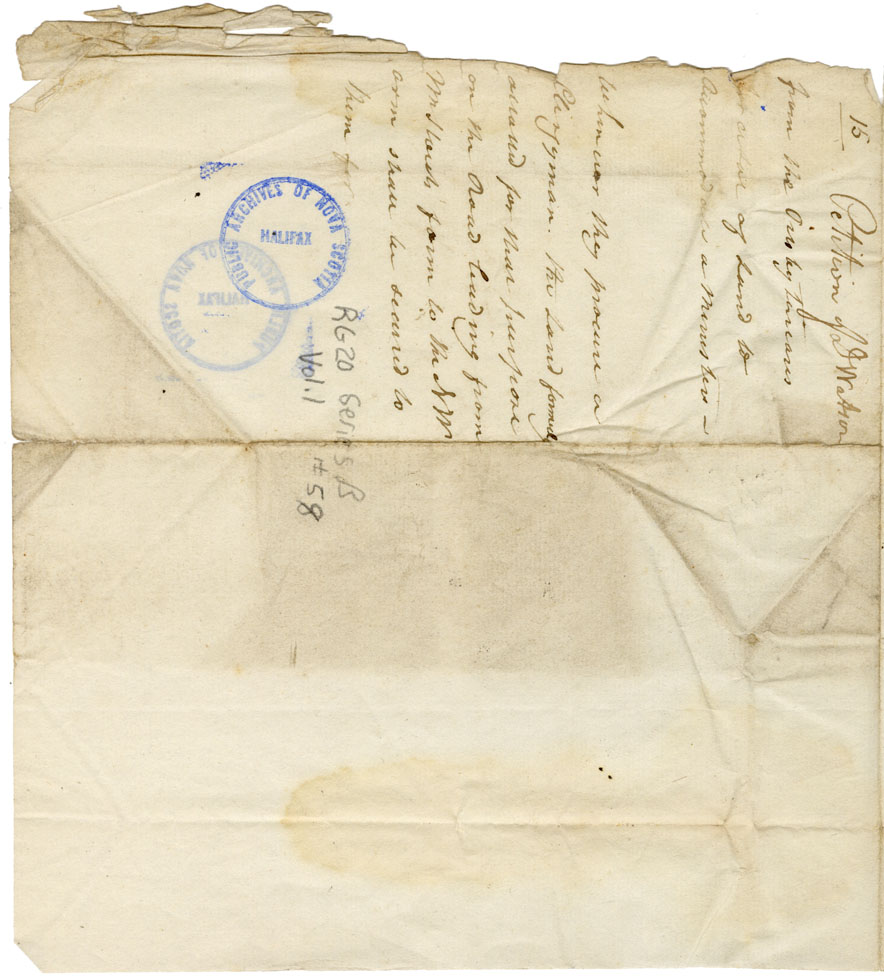 15
Petition of J Watson
from the Presbyterians
of Land to
a Minister –
When ever they procure a
Clergyman. The Land formerly
for that purpose
on the Road leading from
farm to the N W
arm shall be secured to
them
PUBLIC ARCHIVES OF NOVA SCOTIA
HALIFAX
PUBLIC ARCHIVES OF NOVA SCOTIA
HALIFAX
RG20 Series B
Vol. 1 # 58